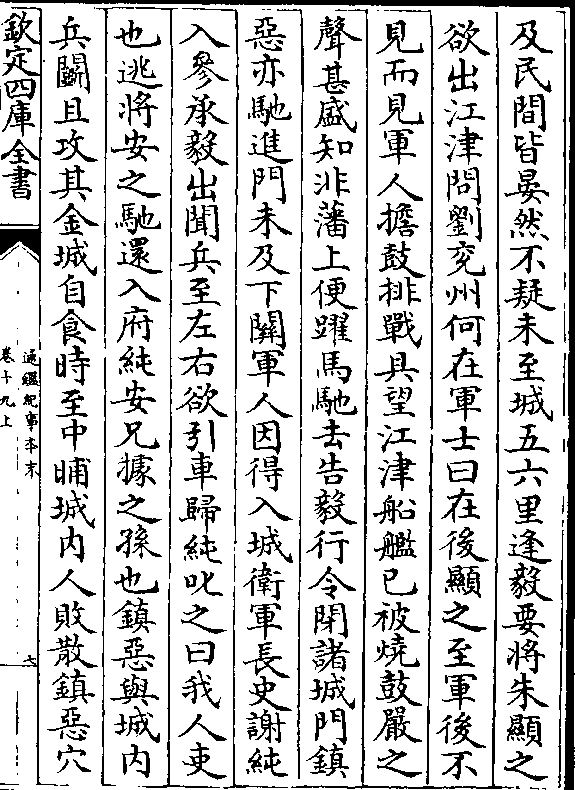 及民間皆晏然不疑未至城五六里逢毅要將朱顯之
欲出江津問劉兖州何在軍士曰在後顯之至軍後不
見而見軍人擔鼓排戰具望江津船艦已被燒鼓嚴之
聲甚盛知非藩上便躍馬馳去告毅行令閉諸城門鎮
惡亦馳進門未及下關軍人因得入城衛軍長史謝純
入參承毅出聞兵至左右欲引車歸純叱之曰我人吏
也逃將安之馳還入府純安兄據之孫也鎮惡與城内
兵鬭且攻其金城自食時至中晡城内人敗散鎮惡穴
欽定四庫全書
通鑑紀事本末
卷十九上
六